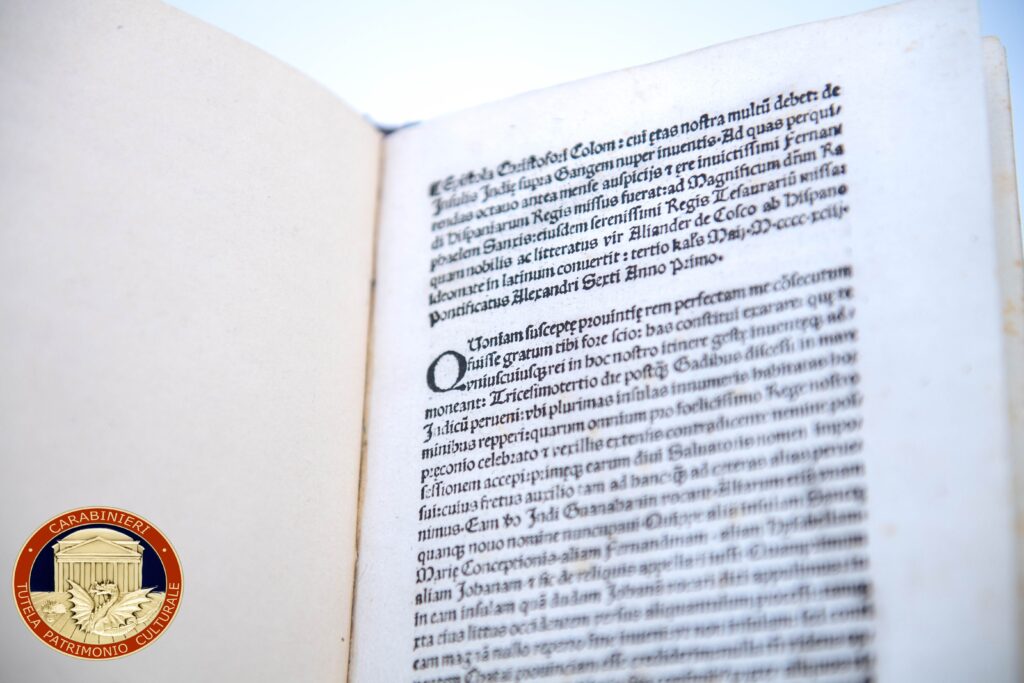 ¶ Epistola Christofori Colom: cui ętas nostra multū debet: de
Insulis Indię supra Gangem nuper inuentis. Ad quas perqui-
rendas octauo antea mense auspicijs ⁊ ęre inuictissimi Fernan
di Hispaniarum Regis missus fuerat: ad Magnificum dn̄m Ra
phaelem Sanxis: eiusdem serenissimi Regis Tesaurariū missa:
quam nobilis ac litteratus vir Aliander de Cosco ab Hispano
ideomate in latinum conuertit: tertio kaƚs Maij. M.cccc.xciij.
Pontificatus Alexandri Sexti Anno Primo.
QVoniam susceptę prouintię rem perfectam me cōsecutum
fuisse gratum tibi fore scio: has constitui exarare: quę te
vniuscuiusqꝫ rei in hoc nostro itinere gestę inuentęqꝫ ad-
moneant: Tricesimotertio die postqꝫ Gadibus discessi in mare
Indicū perueni: vbi plurimas insulas innumeris habitatas ho-
minibus repperi: quarum omnium pro foelicissimo Rege nostro
pręconio celebrato ⁊ vexillis extensis contradicente nemine pos-
sessionem accepi: primęqꝫ earum diui Saluatoris nomen impo-
sui: cuius fretus auxilio tam ad hanc: qꝫ ad cęteras alias perue-
nimus. Eam ꝟo Indi Guanahanin vocant. Aliarum etiā vnam
quanqꝫ nouo nomine nuncupaui. Quippe aliā insulam Sanctę
Marię Conceptionis. aliam Fernandinam. aliam Hysabellam.
aliam Johanam. ⁊ sic de reliquis appellari iussi. Quamprimum
in eam insulam quā dudum Johanā vocari dixi appulimus: iu
xta eius littus occidentem versus aliquantulum processi: tamqꝫ
eam magnā nullo reperto fine inueni: vt non insulam: sed
CARABINIERI
TUTELA PATRIMONIO CULTURALE